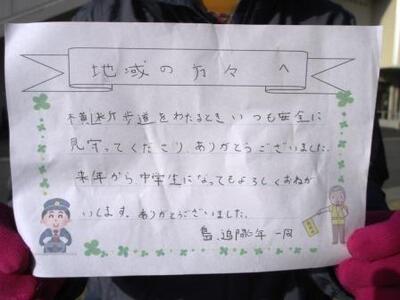 地域の方々へ
横断歩道をわたるときいつも安全に
見守ってくださり、ありがとうございました。
来年から中学生になってもよろしくおねが
いします。ありがとうございました。
一同